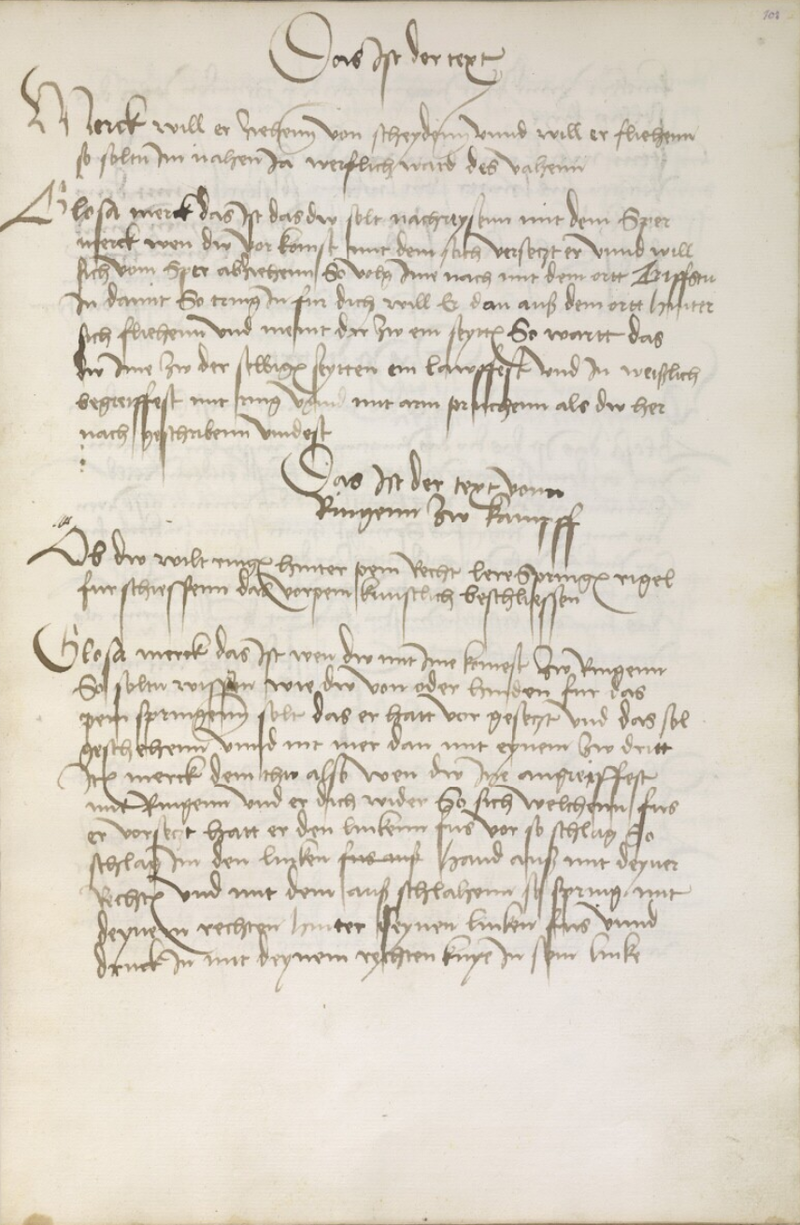 101
Das Ist der text
Merck will er ziehenn von scheydenn vnnd will er fliehenn
so soltu Im nahen Ja werflich ward des vahenn
Glosa merck das Ist das dw solt nachreysenn mit dem Sper
merck wen dw vor komst mit dem stich versetzt er vnnd will
sich vom Sper abziehenn So volg Ime nach mit dem ortt Triffstu
In damit So tring In fur dich will Er dan auß dem ortt hinter
sich fliehenn vnd nempt dir zw ein seyttn So wartt das
dw Ime zw der selbign seytten ein lawffest vnd In weißlich
begreiffest mit ring vnnd mit arm pruchenn als dw her
nach geschribenn vindest
Das Ist der text vonn
Ringenn zw kampff
Ob dw wilt ringn hinter pein Recht lere Springn rigel
fur schiessenn das vorpein kunstlich beschliessen
Glosa merck das Ist wen dw mit Ime komest zw Ringenn
So soltu wissen wie dw von oder hinden fur das
pein springenn solt das er hatt vor gesetzt vnd das sol
geschehenn vnnd nit mer dan mit eynem zw dritt
Itn merck dem thw also wen dw Ine angreyffest
mit Ringenn vnd er dich wider So sich welchenn fus
er vorsetzt hatt er den linkenn fus vor so schlag So
schlag Im den linken fus auß hand auß mit deyner
Rechtn vnd mit dem auß schlahenn so spring mit
deynem rechten hinter seynen linken fus vnnd
druck In mit deynem rechten knye In sein linke